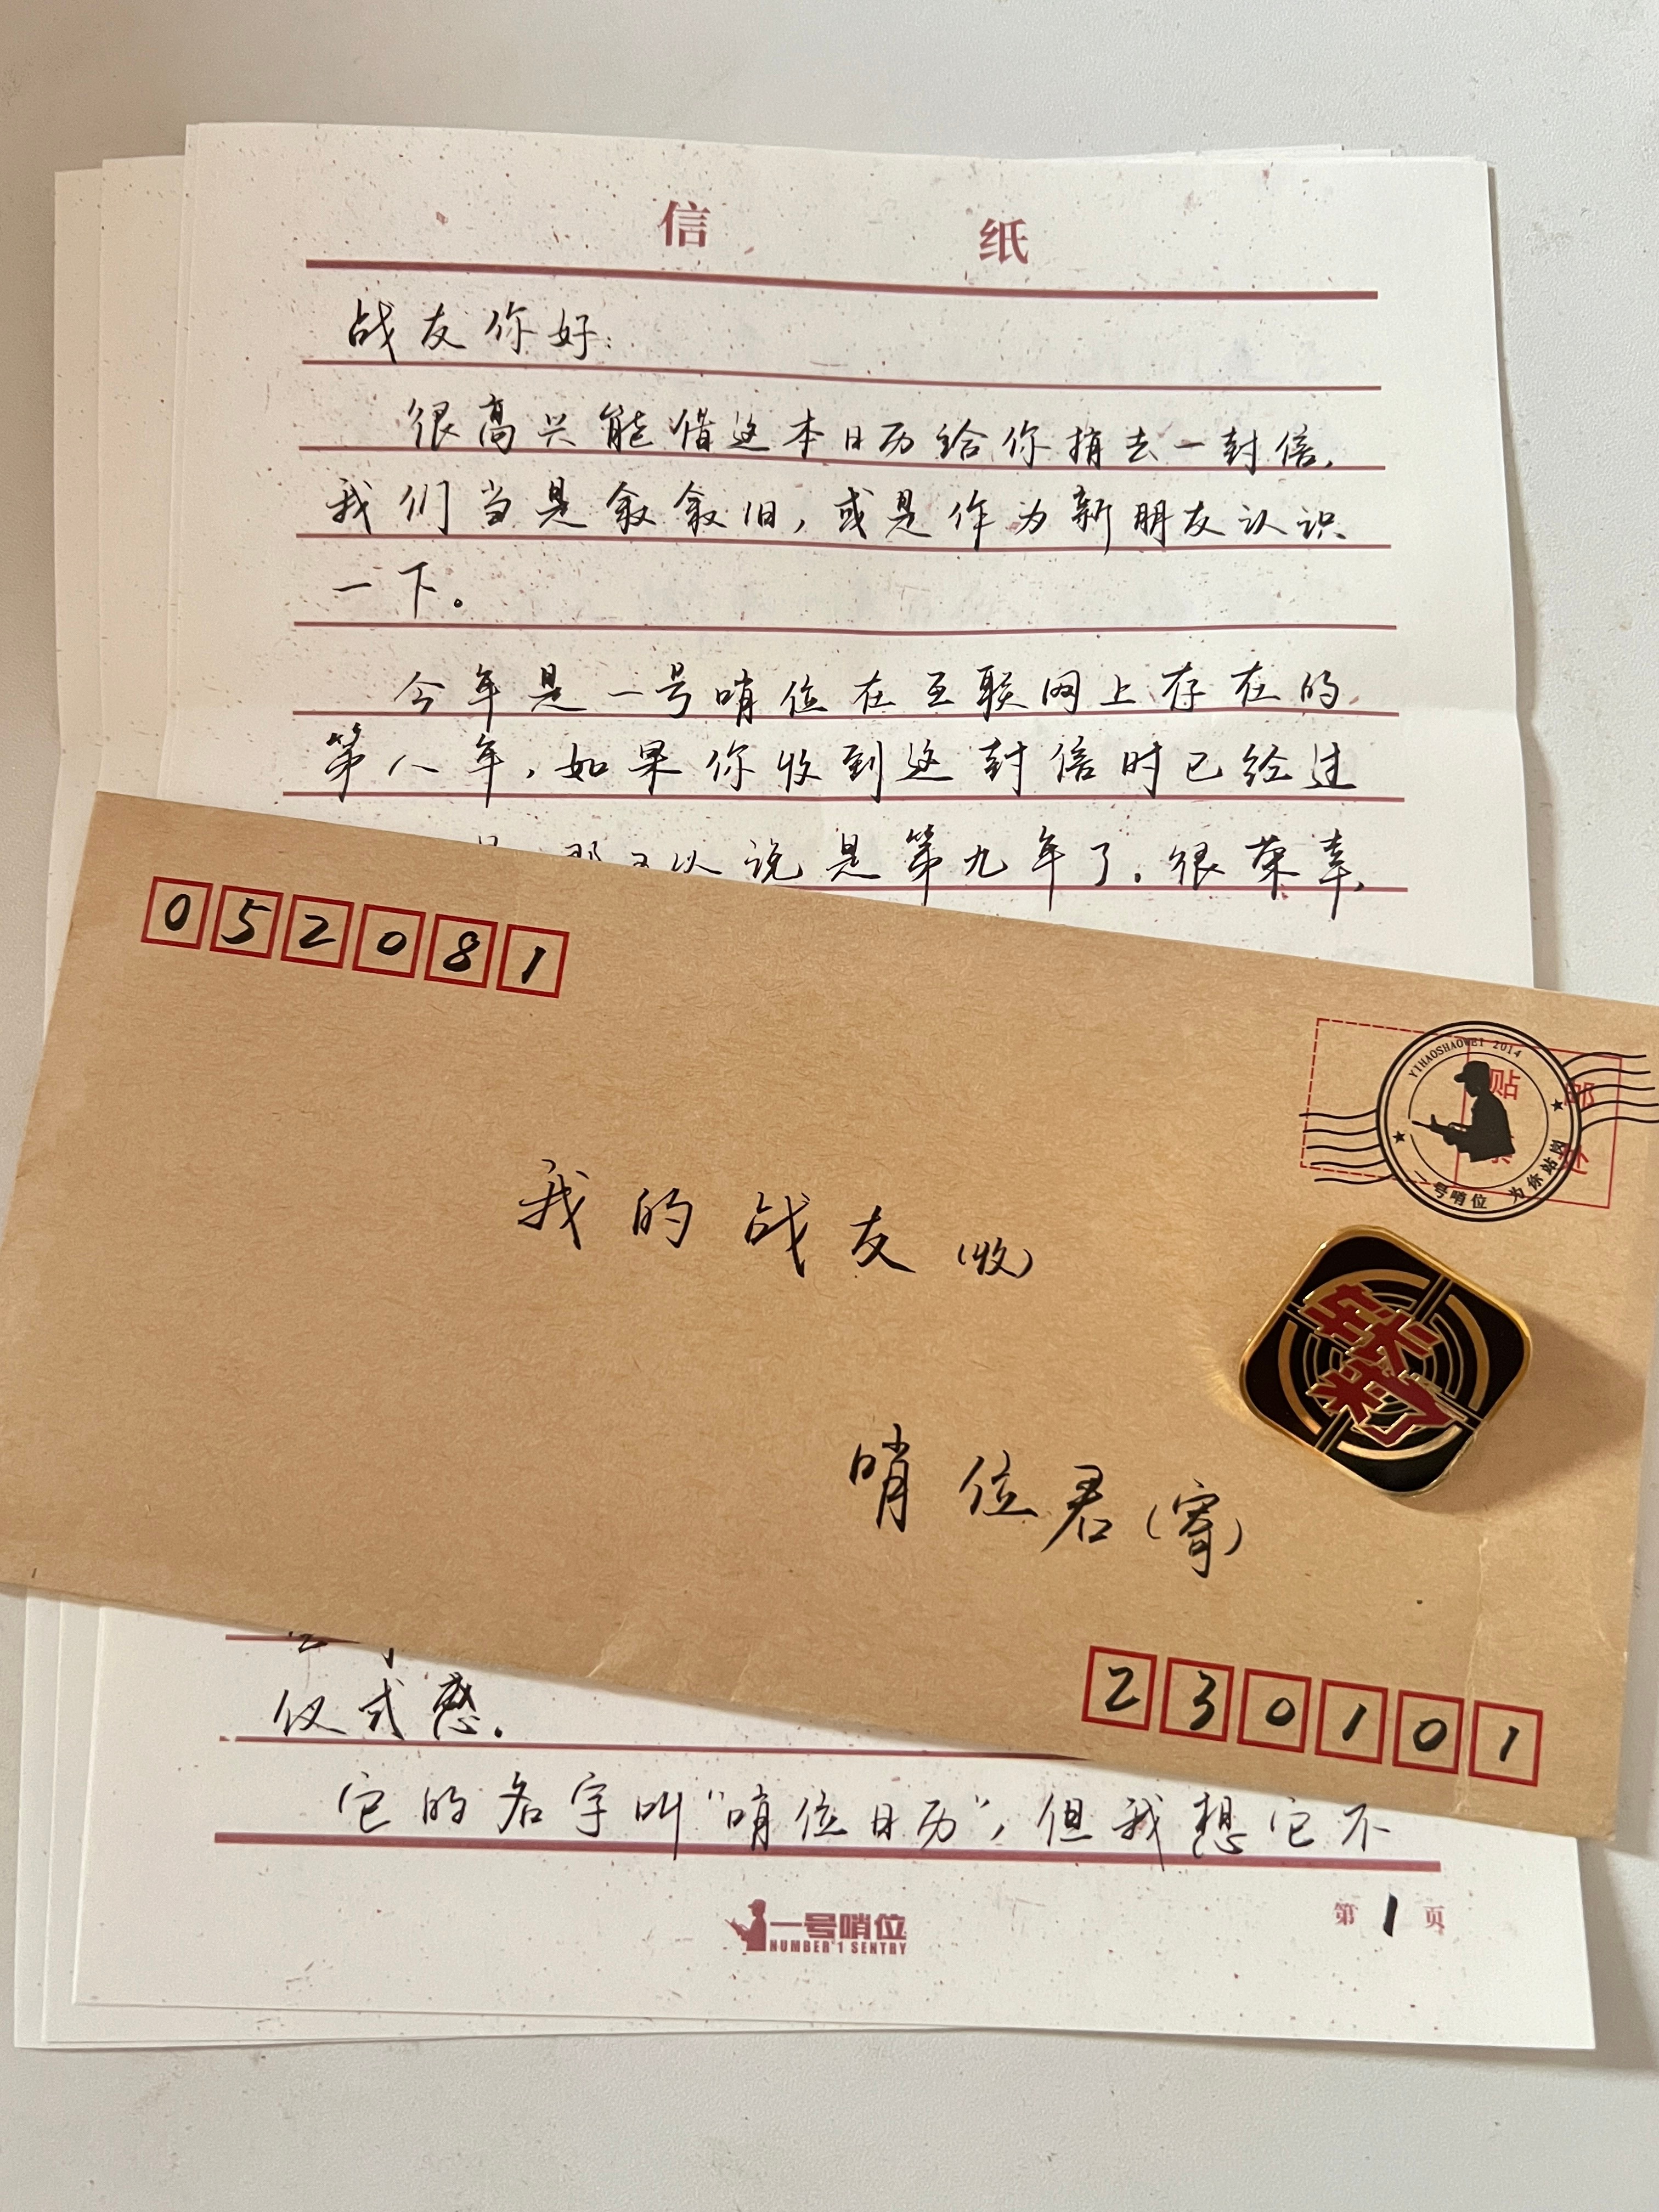 信 纸
战友你好：
很高兴能借这本日历给你捎去一封信，
我们当是叙叙旧，或是作为新朋友认识
一下。
今年是一号哨位在互联网上存在的
第八年，如果你收到这封信时已经过
以说是第九年了。很荣幸，
052081
YIHAOSHAOWEI 2014
贴
一号哨位 为你站岗
我的战友（收）
哨位君（寄）
230101
仪式感。
它的名字叫“哨位日历”，但我想它不
一号哨位
NUMBER'1 SENTRY
第 1 页